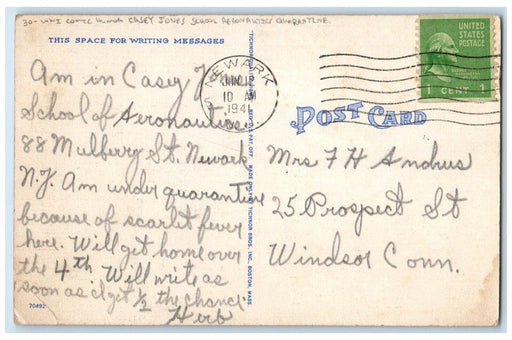 CASEY JONES SCHOOL AERONAUTICS QUARANTINE.
THIS SPACE FOR WRITING MESSAGES
Am in Casey J
School of Aeronautics
88 Mulberry St. Newark
N.J. Am under quarantine
because of scarlet fever
here. Will get home over
the 4th Will write as
soon as I get ½ the chance
Herb
70492
NEWARK
10 AM
1941
UNITED
STATES
POSTAGE
1 CENT 1
POST CARD
Mrs F H Andrus
25 Prospect St
Windsor Conn.
TICHNOR BROS., INC., BOSTON, MASS.